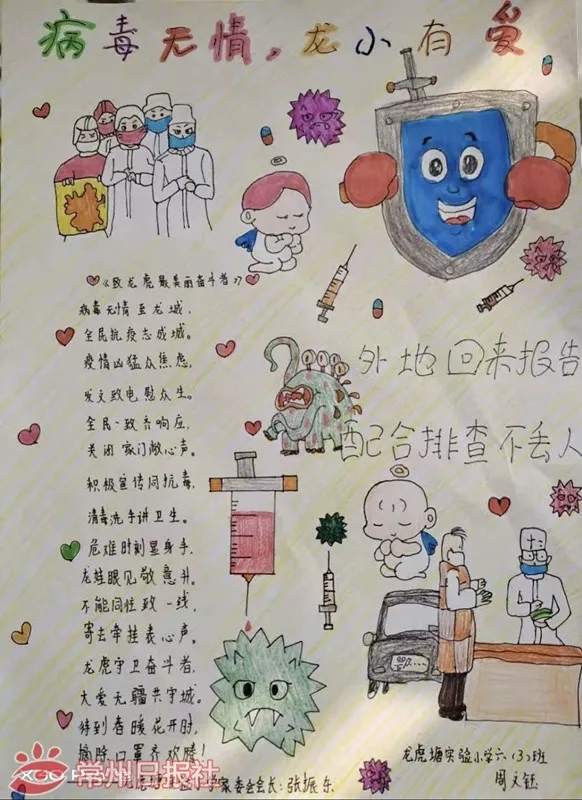 病毒无情，龙小有爱
《致龙虎最美丽奋斗者》
病毒无情至龙城，
全民抗疫志成城。
疫情凶猛众焦虑，
发文致电慰众生。
全民一致齐响应，
关闭家门献心声。
积极宣传同抗毒，
消毒洗手讲卫生。
危难时刻显身手，
龙娃眼见敬意升。
不能同往致一线，
寄去牵挂表心声。
龙虎守卫奋斗者，
大爱无疆共守城。
待到春暖花开时，
摘除口罩齐欢腾！
家委会会长：张振东
外地回来报告
配合排查不丢人
龙虎塘实验小学六（3）班
周文钰
常州日报社